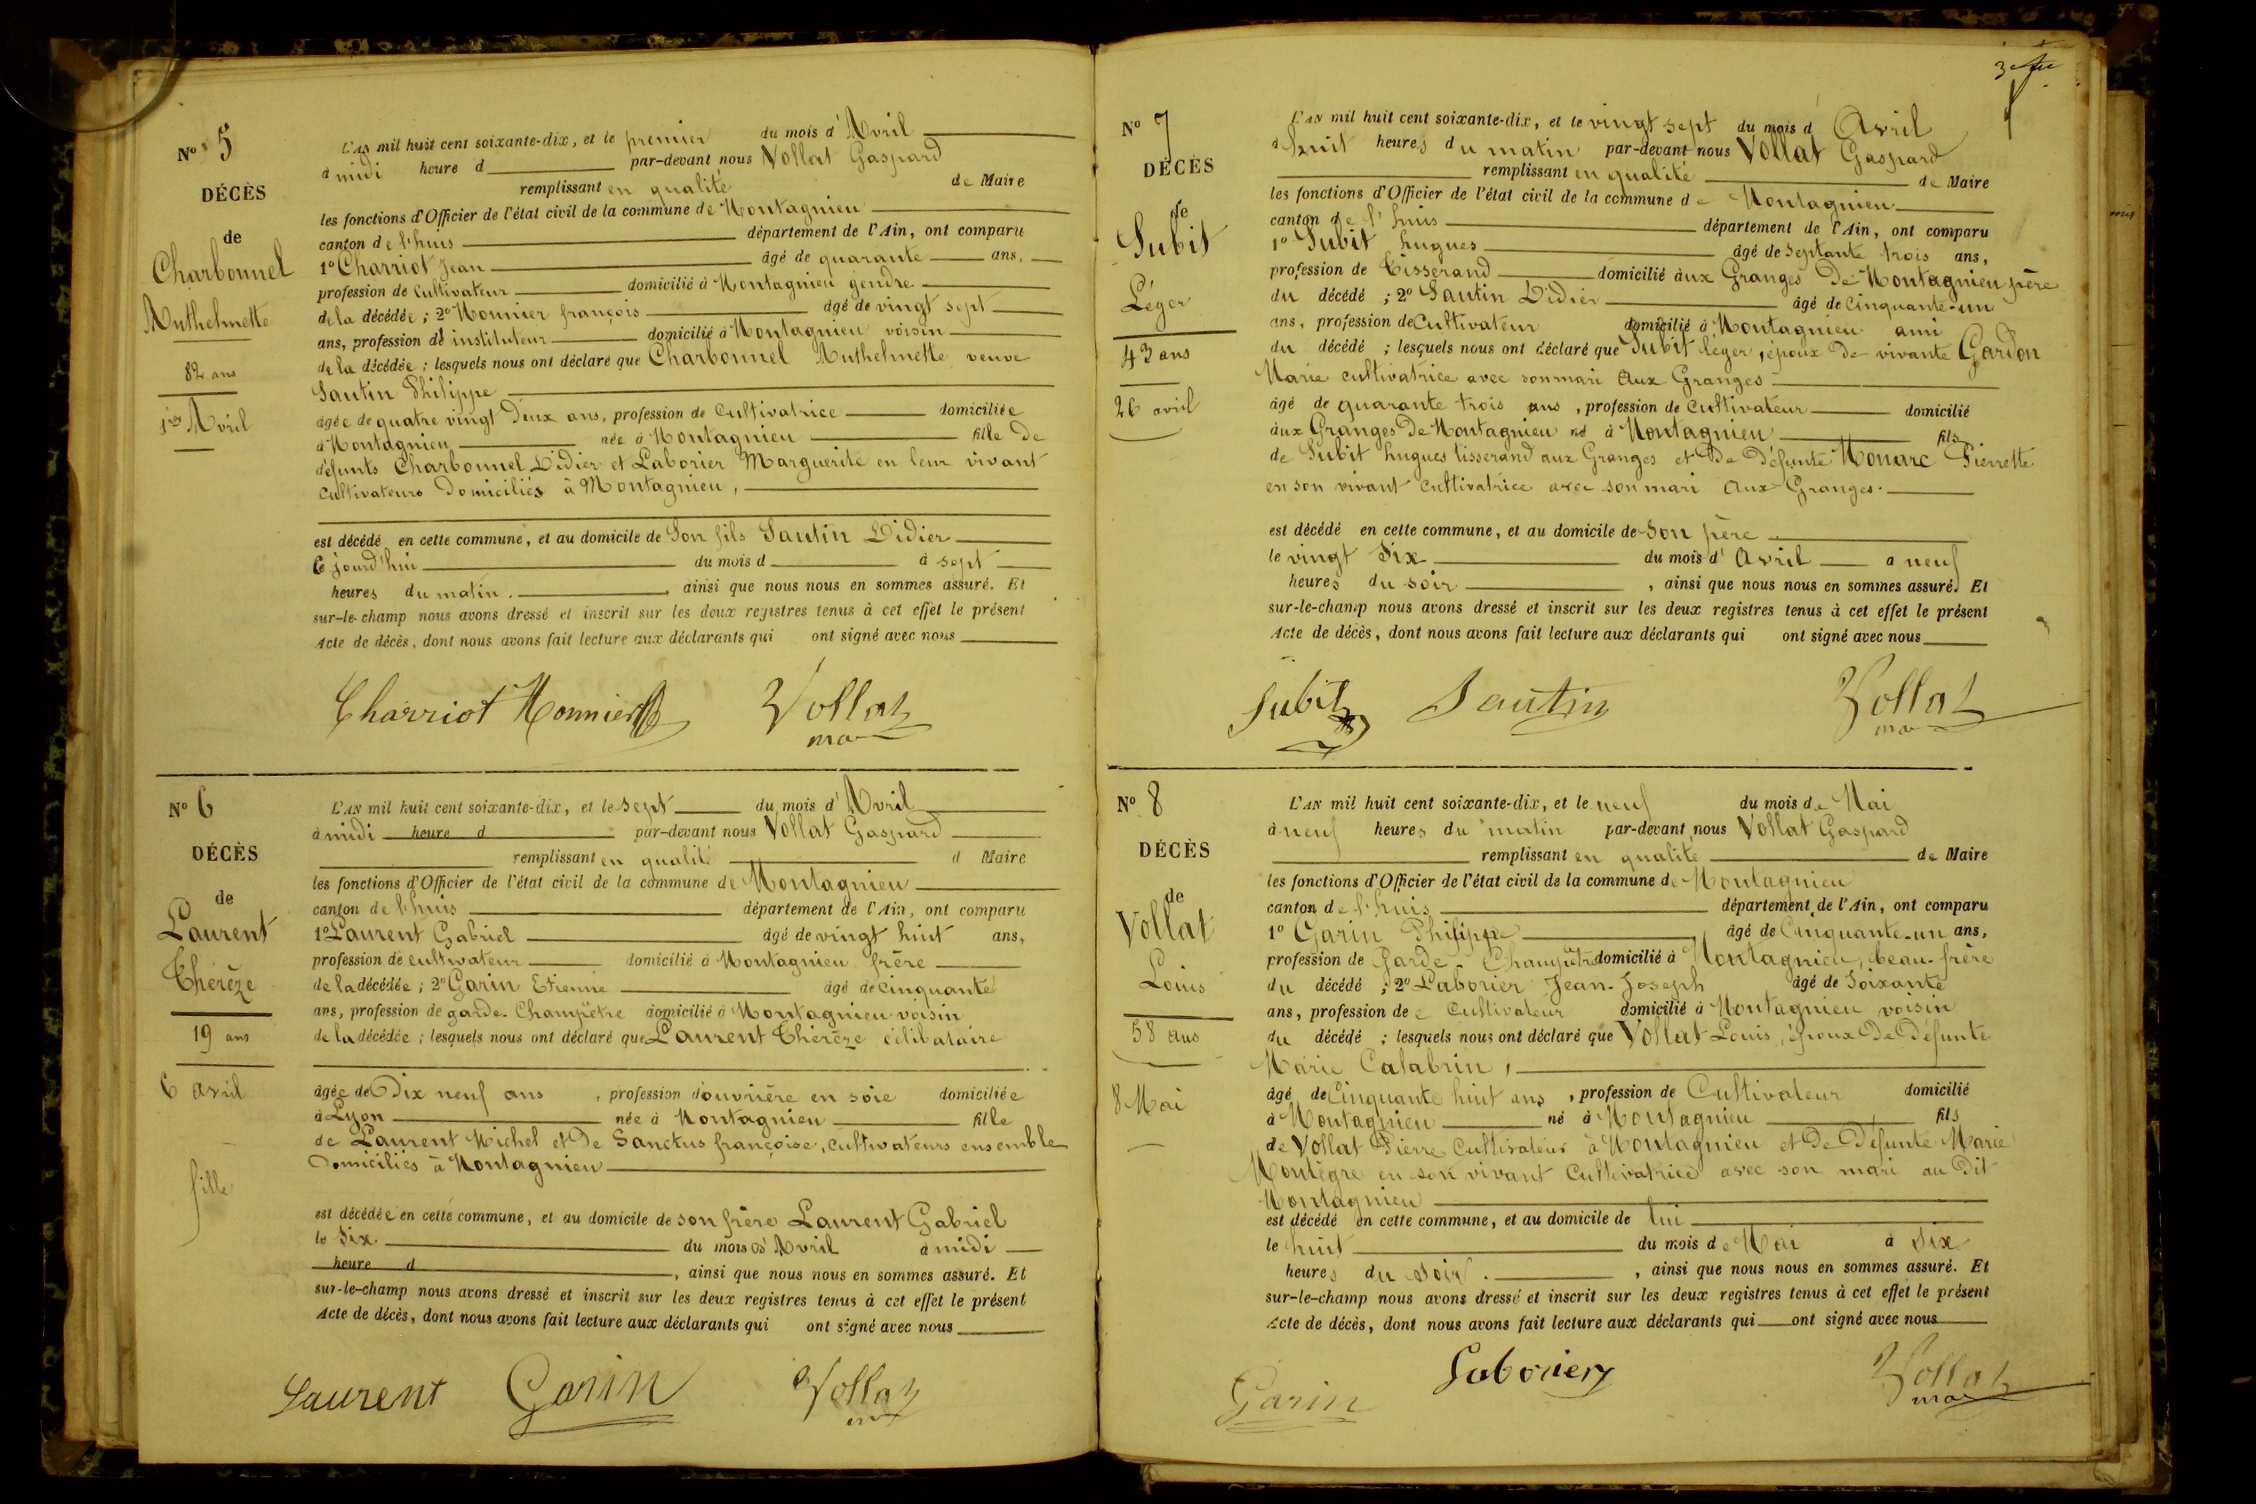 N° 5
DÉCÈS
de
Charbonnel
Anthelmette
82 ans
1er Avril
L'AN mil huit cent soixante-dix, et le premier du mois d'Avril
à midi heure d par-devant nous Vollat Gaspard
remplissant en qualité de Maire
les fonctions d'Officier de l'état civil de la commune de Montagnieu
canton de Lhuis département de l'Ain, ont comparu
1° Charriot Jean âgé de quarante ans,
profession de Cultivateur domicilié à Montagnieu gendre
de la décédée ; 2° Monnier françois âgé de vingt sept
ans, profession de instituteur domicilié à Montagnieu voisin
de la décédée ; lesquels nous ont déclaré que Charbonnel Anthelmette veuve
Santin Philippe
âgée de quatre vingt deux ans, profession de Cultivatrice domiciliée
à Montagnieu née à Montagnieu fille de
défunts Charbonnel Didier et Laborier Marguerite en leur vivant
Cultivateurs domiciliés à Montagnieu,
est décédé en cette commune, et au domicile de Son fils Santin Didier
Ce jourd'hui du mois d à sept
heures du matin. , ainsi que nous nous en sommes assuré. Et
sur-le-champ nous avons dressé et inscrit sur les deux registres tenus à cet effet le présent
Acte de décès, dont nous avons fait lecture aux déclarants qui ont signé avec nous
Charriot Monnier Vollat
N° 6
DÉCÈS
de
Laurent
Thérèze
19 ans
6 avril
fille
L'AN mil huit cent soixante-dix, et le sept du mois d'Avril
à midi heure d par-devant nous Vollat Gaspard
remplissant en qualité d Maire
les fonctions d'Officier de l'état civil de la commune de Montagnieu
canton de Lhuis département de l'Ain, ont comparu
1° Laurent Gabriel âgé de vingt huit ans,
profession de cultivateur domicilié à Montagnieu frère
de la décédée ; 2° Garin Etienne âgé de cinquante
ans, profession de garde-Champêtre domicilié à Montagnieu voisin
de la décédée ; lesquels nous ont déclaré que Laurent Thérèze célibataire
âgée de Dix neuf ans , profession d'ouvrière en soie domiciliée
à Lyon née à Montagnieu fille
de Laurent Michel et de Sanctus françoise, cultivateurs ensemble
Domiciliés à Montagnieu
est décédée en cette commune, et au domicile de son frère Laurent Gabriel
le Six du mois d'Avril à midi
heure d , ainsi que nous nous en sommes assuré. Et
sur-le-champ nous avons dressé et inscrit sur les deux registres tenus à cet effet le présent
Acte de décès, dont nous avons fait lecture aux déclarants qui ont signé avec nous
Laurent Garin Vollat
N° 7
DÉCÈS
de
Subit
Léger
43 ans
26 avril
L'AN mil huit cent soixante-dix, et le vingt sept du mois d Avril
à huit heures du matin par-devant nous Vollat Gaspard
remplissant en qualité de Maire
les fonctions d'Officier de l'état civil de la commune de Montagnieu
canton de Lhuis département de l'Ain, ont comparu
1° Subit hugues âgé de septante trois ans,
profession de Tisserand domicilié aux Granges de Montagnieu père
du décédé ; 2° Santin Didier âgé de Cinquante-un
ans, profession de Cultivateur domicilié à Montagnieu ami
du décédé ; lesquels nous ont déclaré que Subit léger, époux de vivante Gardon
Marie cultivatrice avec son mari aux Granges
âgé de quarante trois ans , profession de Cultivateur domicilié
aux Granges de Montagnieu né à Montagnieu fils
de Subit hugues tisserand aux Granges et de défunte Monarc Pierrette
en son vivant Cultivatrice avec son mari aux Granges.
est décédé en cette commune, et au domicile de son père
le vingt Six du mois d'Avril à neuf
heures du soir , ainsi que nous nous en sommes assuré. Et
sur-le-champ nous avons dressé et inscrit sur les deux registres tenus à cet effet le présent
Acte de décès, dont nous avons fait lecture aux déclarants qui ont signé avec nous
Subit Santin Vollat
N° 8
DÉCÈS
de
Vollat
Louis
58 ans
8 Mai
L'AN mil huit cent soixante-dix, et le neuf du mois de Mai
à neuf heures du matin par-devant nous Vollat Gaspard
remplissant en qualité de Maire
les fonctions d'Officier de l'état civil de la commune de Montagnieu
canton de Lhuis département de l'Ain, ont comparu
1° Garin Philippe âgé de Cinquante-un ans,
profession de Garde-Champêtre domicilié à Montagnieu, beau-frère
du décédé ; 2° Laborier Jean-Joseph âgé de Soixante
ans, profession de Cultivateur domicilié à Montagnieu voisin
du décédé ; lesquels nous ont déclaré que Vollat Louis, époux de défunte
Marie Catabrin,
âgé de Cinquante huit ans , profession de Cultivateur domicilié
à Montagnieu né à Montagnieu fils
de Vollat Pierre Cultivateur à Montagnieu et de défunte Marie
Montègre en son vivant Cultivatrice avec son mari au dit
Montagnieu
est décédé en cette commune, et au domicile de lui
le huit du mois de Mai à Six
heures du soir. , ainsi que nous nous en sommes assuré. Et
sur-le-champ nous avons dressé et inscrit sur les deux registres tenus à cet effet le présent
Acte de décès, dont nous avons fait lecture aux déclarants qui ont signé avec nous
Garin Laborier Vollat